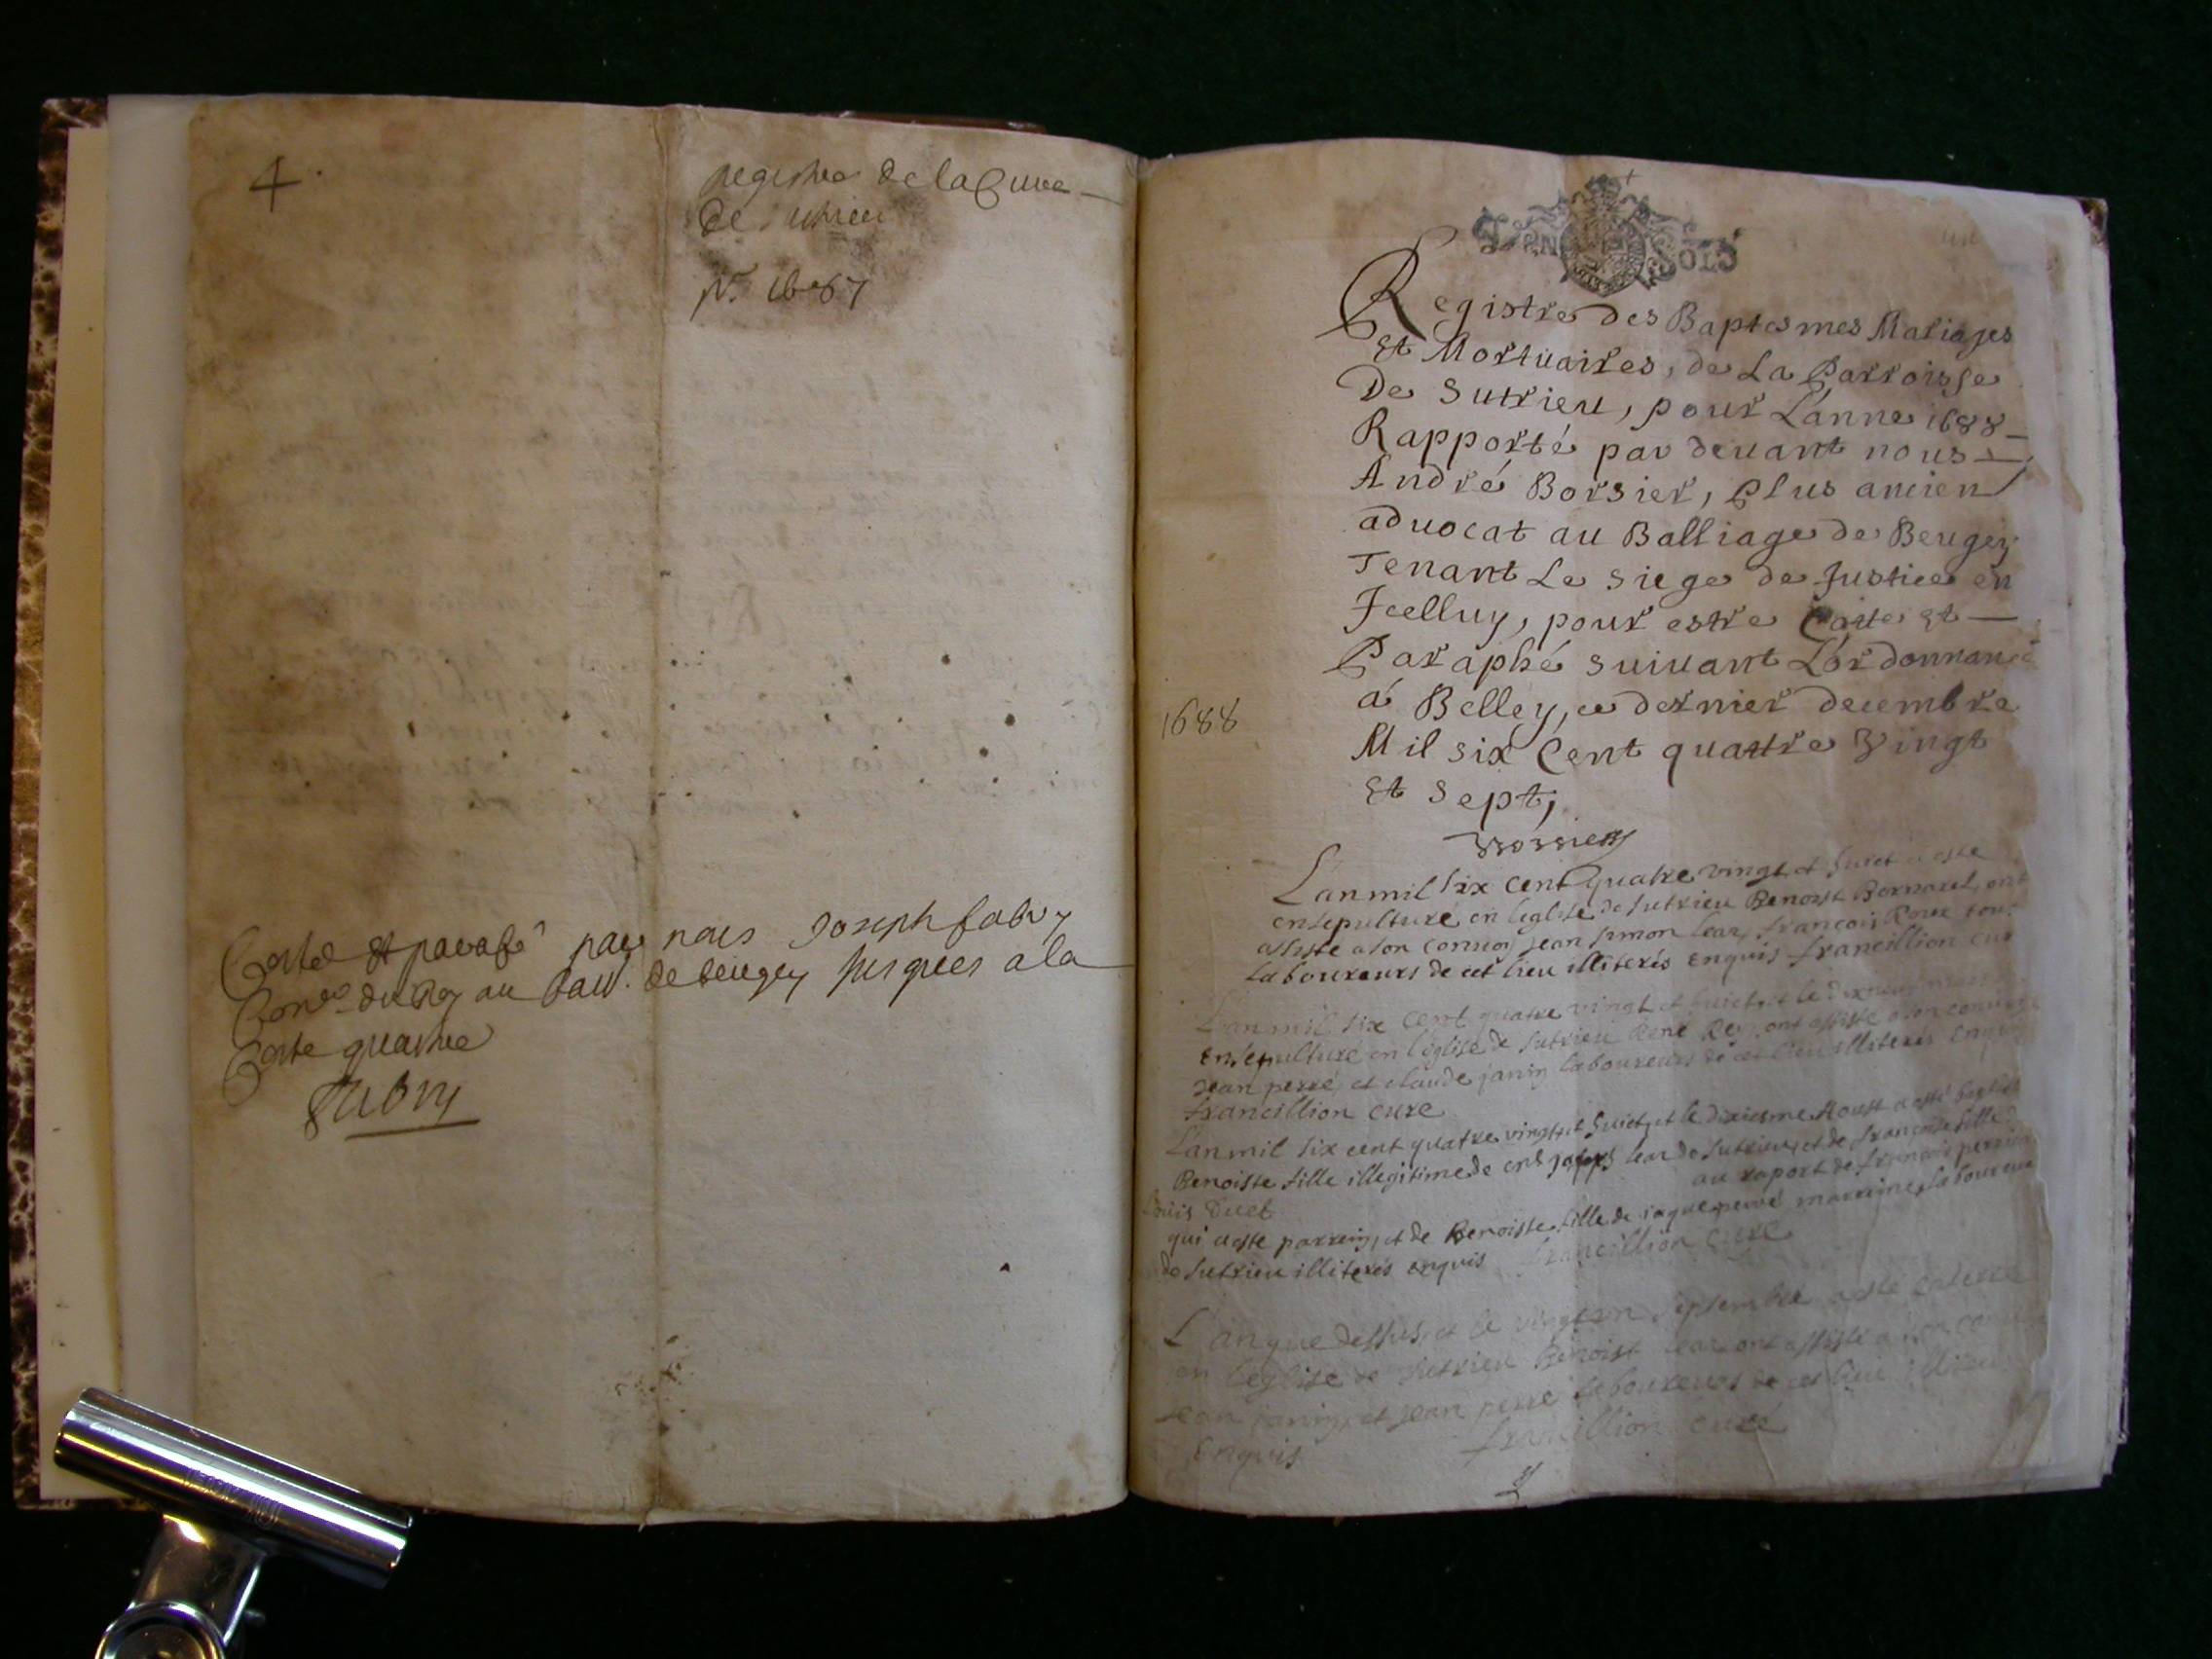 4.
registre de la Cure
de Sutrieu
pr. 1687
Cotté et paraphé par nous Joseph fabry
Conser du Roy au Baill. de beugey jusques a la
Cotte quattre
fabry
Sols
Registre des Baptesmes Mariages
Et Mortuaires, de La Parroisse
De Sutrieu, pour L'anne 1688
Rapporté par devant nous
André Borsier, Plus ancien
advocat au Balliage de Beugey
Tenant Le siege de Justice en
Icelluy, pour estre Cotte Et
Paraphé suivant L'ordonnance
à Belley, ce dernier decembre
1688
Mil six Cent quattre Vingt
Et Sept,
Borsier
L'an mil six cent quatre vingt et huict a esté
ensepulturé en l'eglise de sutrieu Benoist Bornarel, ont
assisté a son convoy jean simon lear, françois Roux tous
laboureurs de cet lieu illiterés enquis francillion curé
L'an mil six cent quatre vingt et huict, et le
ensepulturé en l'église de sutrieu René Rey ont assisté a son convoy
Jean perré, et claude janin laboureurs de cet lieu illiterés enquis
francillion curé
L'an mil six cent quatre vingt et huict, et le dixiesme Aoust a esté baptisé
Benoiste fille illegitime de lear de sutrieu, et de françoise fille
Louis Duet au raport de françois
qui a esté parrein, et de Benoiste fille de jaque perré marreine, laboureur
de sutrieu illiterés enquis francillion curé
L'an que dessus, et le vingt un septembre a esté enterré
en l'eglise de sutrieu Benoist lear ont assisté a son convoy
Jean janin, et jean perré laboureurs de cet lieu
Enquis francillion curé